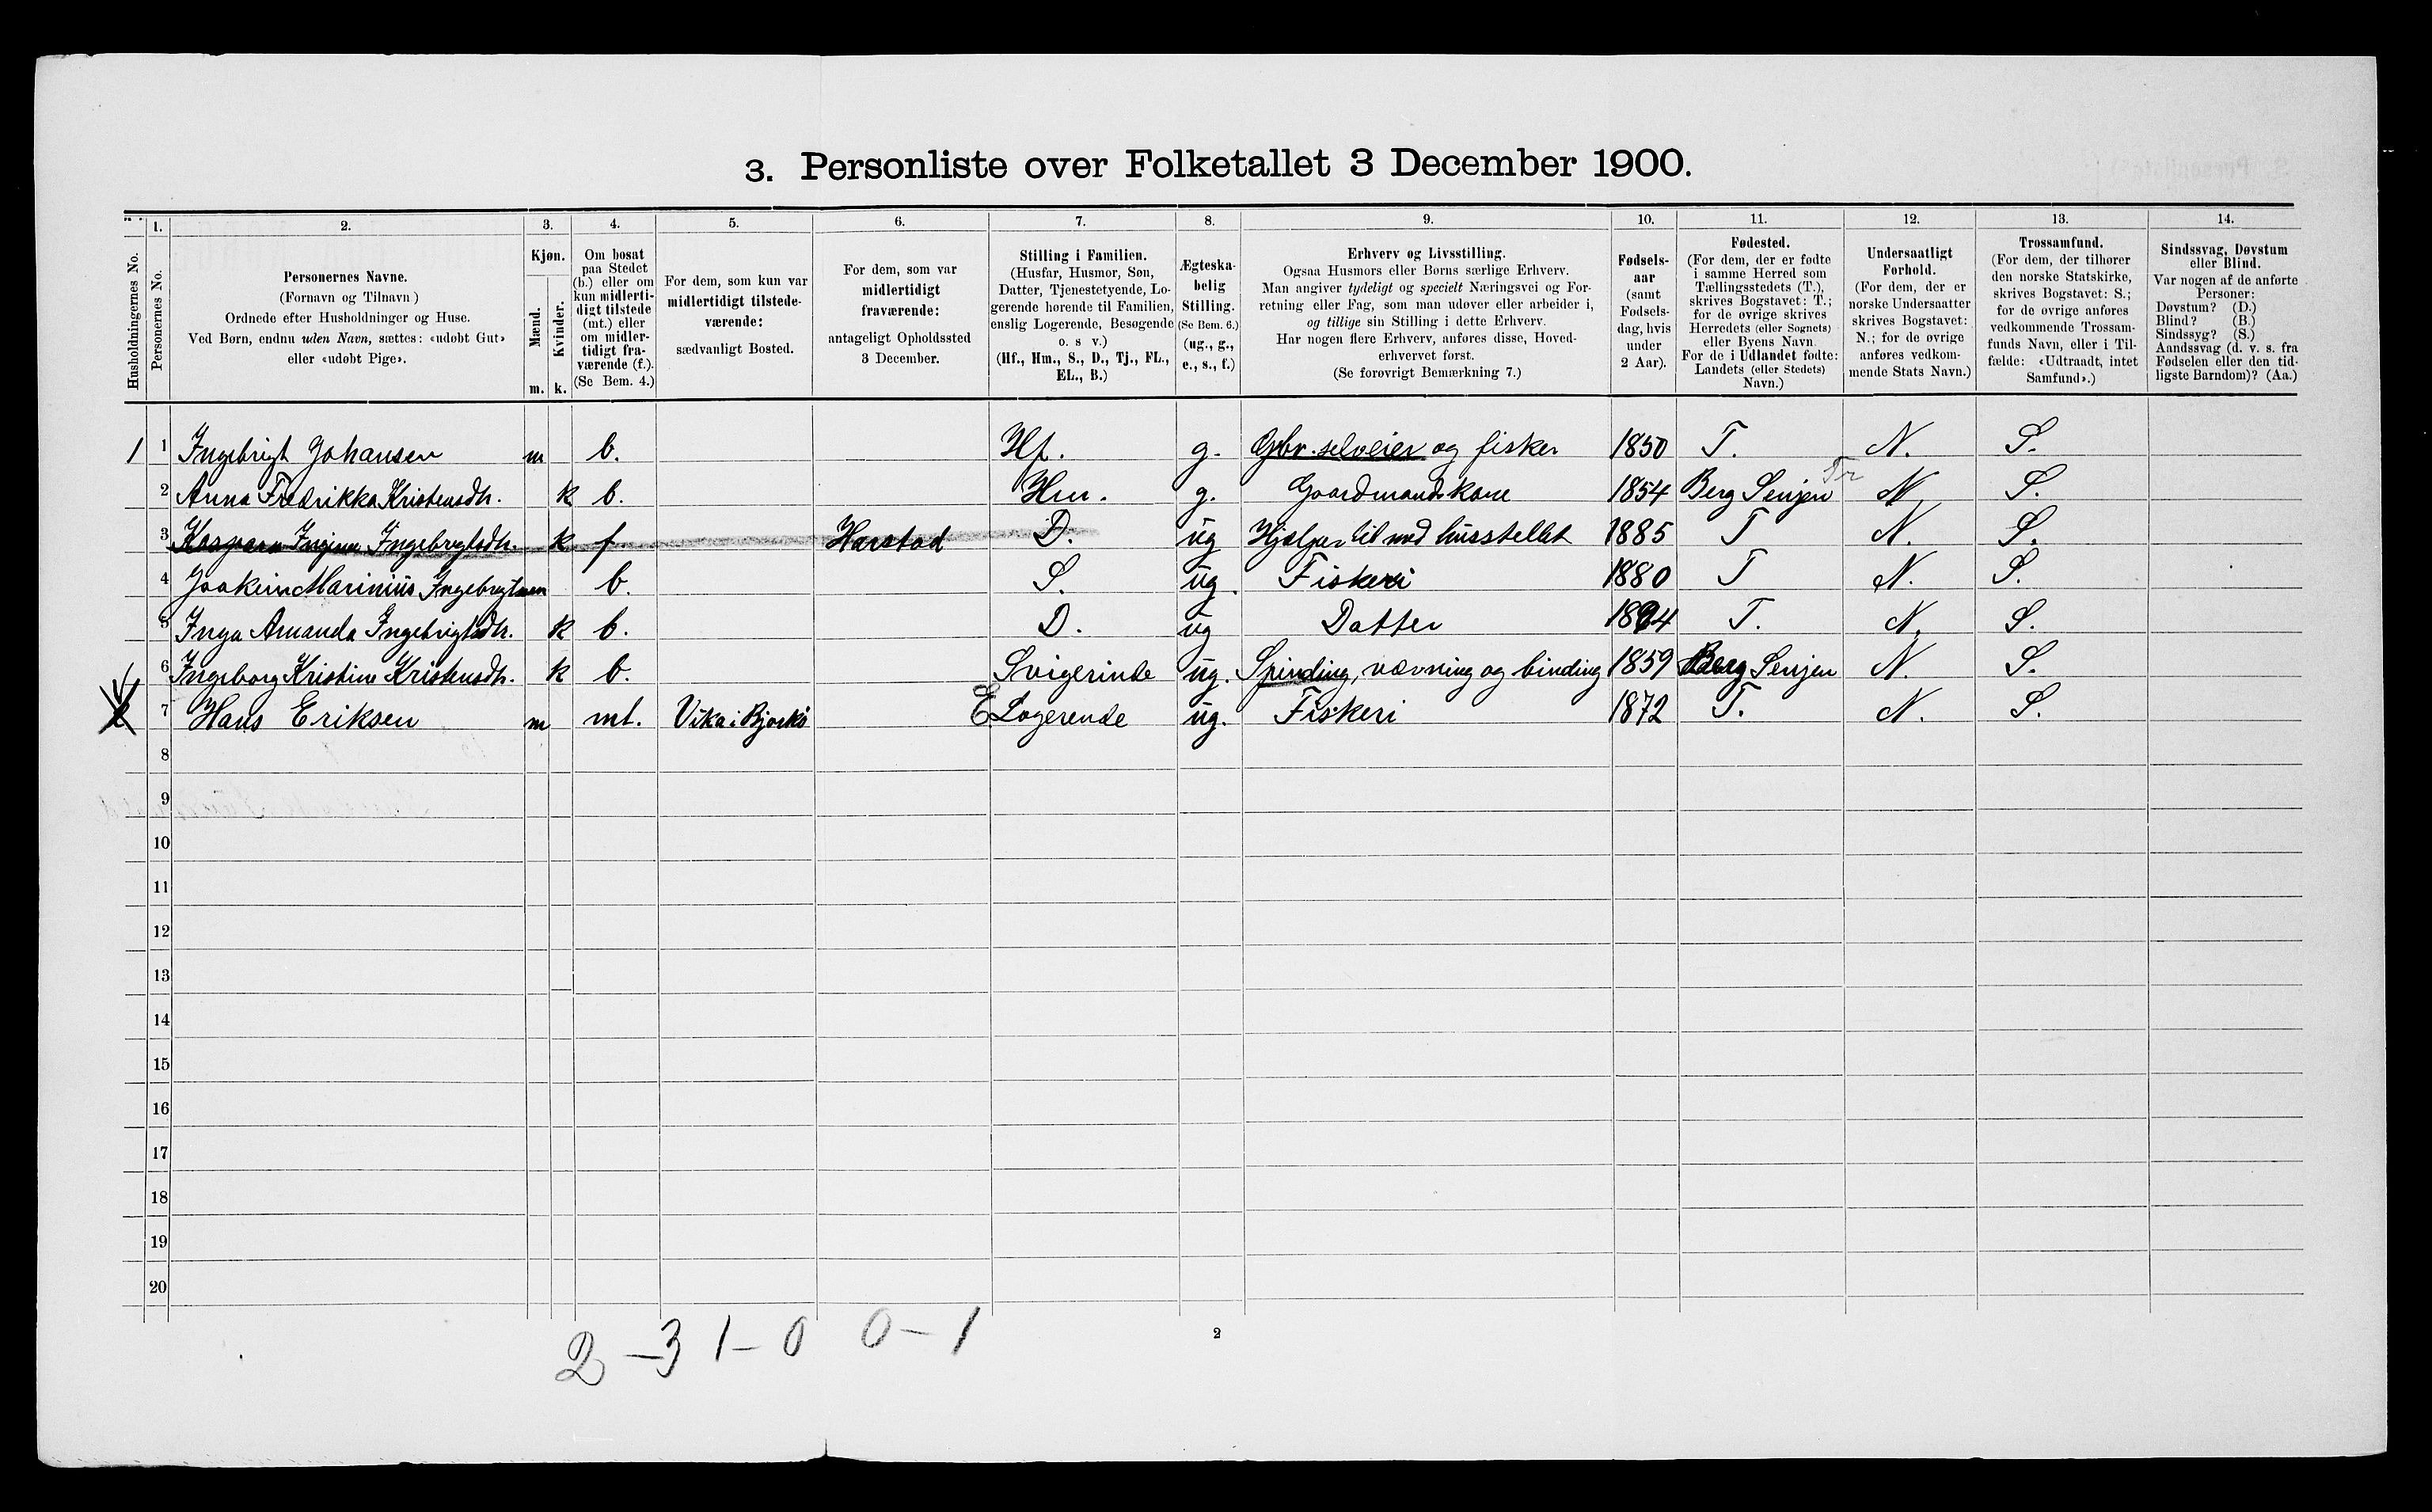 3. Personliste over Folketallet 3 December 1900.
1. 2. 3. 4. 5. 6. 7. 8. 9. 10. 11. 12. 13. 14.
Husholdningernes No.
Personernes No.
Personernes Navne.
(Fornavn og Tilnavn )
Ordnede efter Husholdninger og Huse.
Ved Børn, endnu uden Navn, sættes: «udøbt Gut»
eller «udøbt Pige».
Kjøn.
Mænd.
Kvinder.
m. k.
Om bosat
paa Stedet
(b.) eller om
kun midlerti-
digt tilstede
(mt.) eller
om midler-
tidigt fra-
værende (f.).
(Se Bem. 4.)
For dem, som kun var
midlertidigt tilstede-
værende:
sædvanligt Bosted.
For dem, som var
midlertidigt
fraværende:
antageligt Opholdssted
3 December.
Stilling i Familien.
(Husfar, Husmor, Søn,
Datter, Tjenestetyende, Lo-
gerende hørende til Familien,
enslig Logerende, Besøgende
o. s v.)
(Hf., Hm., S., D., Tj., FL.,
EL., B.)
Ægteska-
belig
Stilling.
(Se Bem. 6.)
(ug., g.,
e., s., f.)
Erhverv og Livsstilling.
Ogsaa Husmors eller Børns særlige Erhverv.
Man angiver tydeligt og specielt Næringsvei og For-
retning eller Fag, som man udøver eller arbeider i,
og tillige sin Stilling i dette Erhverv.
Har nogen flere Erhverv, anføres disse, Hoved-
erhvervet først.
(Se forøvrigt Bemærkning 7.)
Fødsels-
aar
(samt
Fødsels-
dag, hvis
under
2 Aar).
Fødested.
(For dem, der er fødte
i samme Herred som
Tællingsstedets (T.),
skrives Bogstavet: T.;
for de øvrige skrives
Herredets (eller Sognets)
eller Byens Navn.
For de i Udlandet fødte:
Landets (eller Stedets)
Navn.)
Undersaatligt
Forhold.
(For dem, der er
norske Undersaatter
skrives Bogstavet:
N.; for de øvrige
anføres vedkom-
mende Stats Navn.)
Trossamfund.
(For dem, der tilhører
den norske Statskirke,
skrives Bogstavet: S.;
for de øvrige anføres
vedkommende Trossam-
funds Navn, eller i Til-
fælde: «Udtraadt, intet
Samfund».)
Sindssvag, Døvstum
eller Blind.
Var nogen af de anførte
Personer:
Døvstum? (D.)
Blind? (B.)
Sindssyg? (S.)
Aandssvag (d. v. s. fra
Fødselen eller den tid-
ligste Barndom)? (Aa.)
1 1 Ingebrigt Johansen m b. Hf. g. Gbr. selveier og fisker 1850 T. N. S.
2 Anna Fredrikka Kristensdtr. k b. Hm. g. Gaardmandskone 1854 Berg Senjen Tr N. S.
3 Kaspara Ingebrigtsdtr. k f Harstad D. ug Hjælper til med husstellet 1885 T N. S.
4 Joakim Marinius Ingebrigtsen b. S. ug. Fiskeri 1880 T N. S.
5 Inga Amanda Ingebrigtsdtr. k b. D. ug Datter 1894 T. N. S.
6 Ingeborg Kristine Kristensdtr. k b. Svigerinde ug. Spinding, vævning og binding 1859 Berg Senjen N. S.
7 Hans Eriksen m mt. Vika i Bjarkö E. Logerende ug. Fiskeri 1872 T. N. S.
8
9
10
11
12
13
14
15
16
17
18
19
20
2 – 3 1 – 0 0 – 1
2